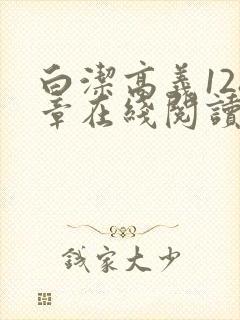 白潔高義12
章在綫閱讀
錢家大少